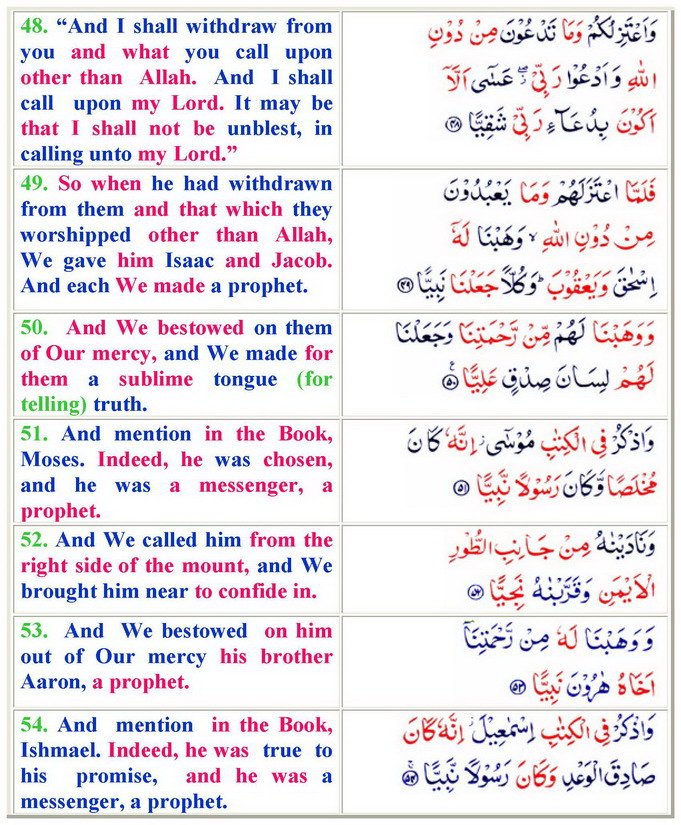 48. “And I shall withdraw from
you and what you call upon
other than Allah. And I shall
call upon my Lord. It may be
that I shall not be unblest, in
calling unto my Lord.”
وَاَعْتَزِلُكُمْ وَمَا تَدْعُوْنَ مِنْ دُوْنِ
اللّٰهِ وَاَدْعُوْا رَبِّىْ ۖ عَسٰٓى اَلَّآ
اَكُوْنَ بِدُعَآءِ رَبِّىْ شَقِيًّا ﴿۴۸﴾
49. So when he had withdrawn
from them and that which they
worshipped other than Allah,
We gave him Isaac and Jacob.
And each We made a prophet.
فَلَمَّا اعْتَزَلَهُمْ وَمَا يَعْبُدُوْنَ
مِنْ دُوْنِ اللّٰهِ ۙ وَهَبْنَا لَهٗۤ
اِسْحٰقَ وَيَعْقُوْبَ ؕ وَكُلًّا جَعَلْنَا نَبِيًّا ﴿۴۹﴾
50. And We bestowed on them
of Our mercy, and We made for
them a sublime tongue (for
telling) truth.
وَوَهَبْنَا لَهُمْ مِّنْ رَّحْمَتِنَا وَجَعَلْنَا
لَهُمْ لِسَانَ صِدْقٍ عَلِيًّا ﴿۵۰﴾
51. And mention in the Book,
Moses. Indeed, he was chosen,
and he was a messenger, a
prophet.
وَاذْكُرْ فِى الْكِتٰبِ مُوْسٰٓى ۫ اِنَّهٗ كَانَ
مُخْلَصًا وَّكَانَ رَسُوْلًا نَّبِيًّا ﴿۵۱﴾
52. And We called him from the
right side of the mount, and We
brought him near to confide in.
وَنَادَيْنٰهُ مِنْ جَانِبِ الطُّوْرِ
الْاَيْمَنِ وَقَرَّبْنٰهُ نَجِيًّا ﴿۵۲﴾
53. And We bestowed on him
out of Our mercy his brother
Aaron, a prophet.
وَوَهَبْنَا لَهٗ مِنْ رَّحْمَتِنَاۤ
اَخَاهُ هٰرُوْنَ نَبِيًّا ﴿۵۳﴾
54. And mention in the Book,
Ishmael. Indeed, he was true to
his promise, and he was a
messenger, a prophet.
وَاذْكُرْ فِى الْكِتٰبِ اِسْمٰعِيْلَ ۫ اِنَّهٗ كَانَ
صَادِقَ الْوَعْدِ وَكَانَ رَسُوْلًا نَّبِيًّا ﴿۵۴﴾